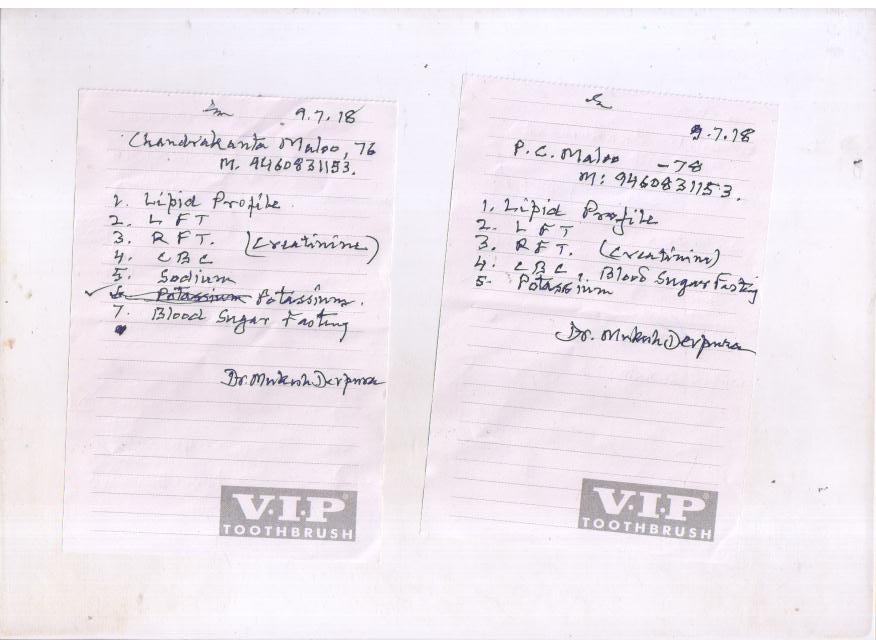 9.7.18
Chandrakanta Maloo, 76
M. 9460831153.
1. Lipid Profile.
2. L F T
3. R F T. (Creatinine)
4. C B C
5. Sodium
6. Potassium Potassium.
7. Blood Sugar Fasting
Dr. Mukesh Devpura
V.I.P
TOOTHBRUSH
9.7.18
P. C. Maloo - 78
M: 9460831153.
1. Lipid Profile
2. L F T
3. R F T. (Creatinine)
4. C B C, Blood Sugar Fasting
5. Potassium
Dr. Mukesh Devpura
V.I.P
TOOTHBRUSH